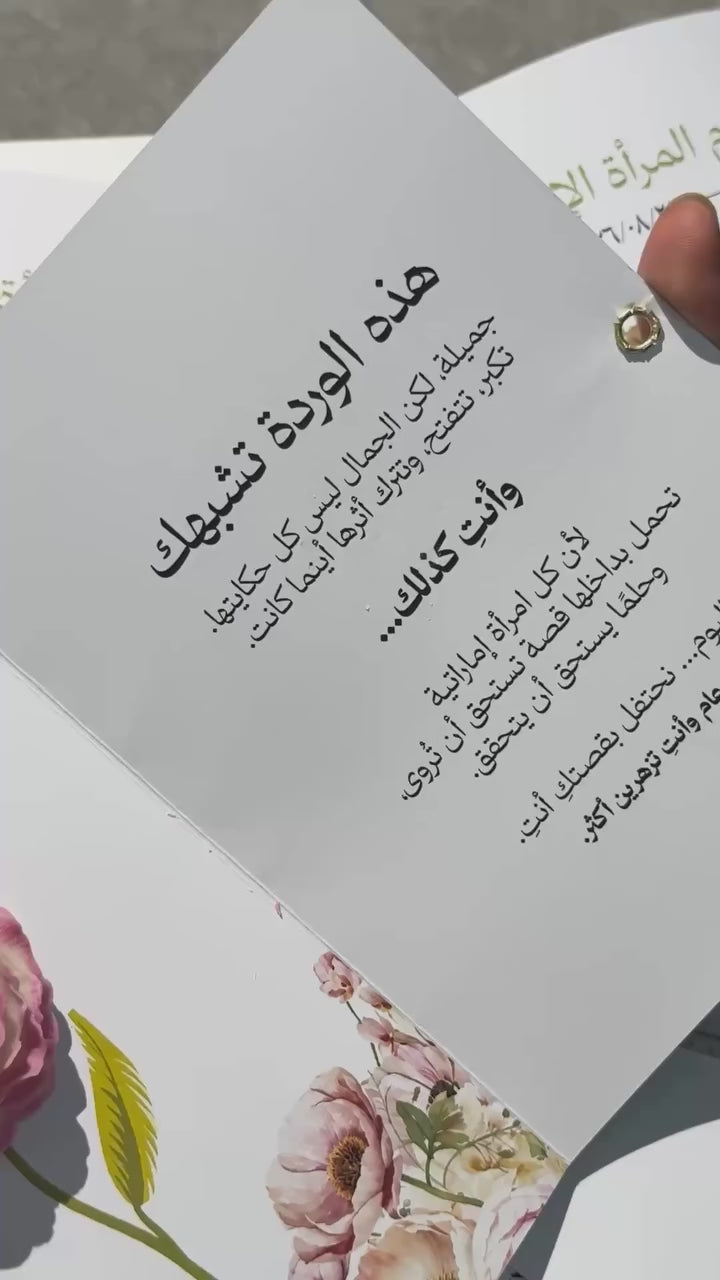 المرأة
هذه الوردة تشبهك
جميلة، لكن الجمال ليس كل حكايتها.
تكبر، تتفتح، وتترك أثرها أينما كانت.
وأنتِ كذلك...
لأن كل امرأة إماراتية
تحمل بداخلها قصة تستحق أن تُروى،
وحلمًا يستحق أن يتحقق.
نحتفل بقصتكِ أنتِ.
وأنتِ تزهرين أكثر.